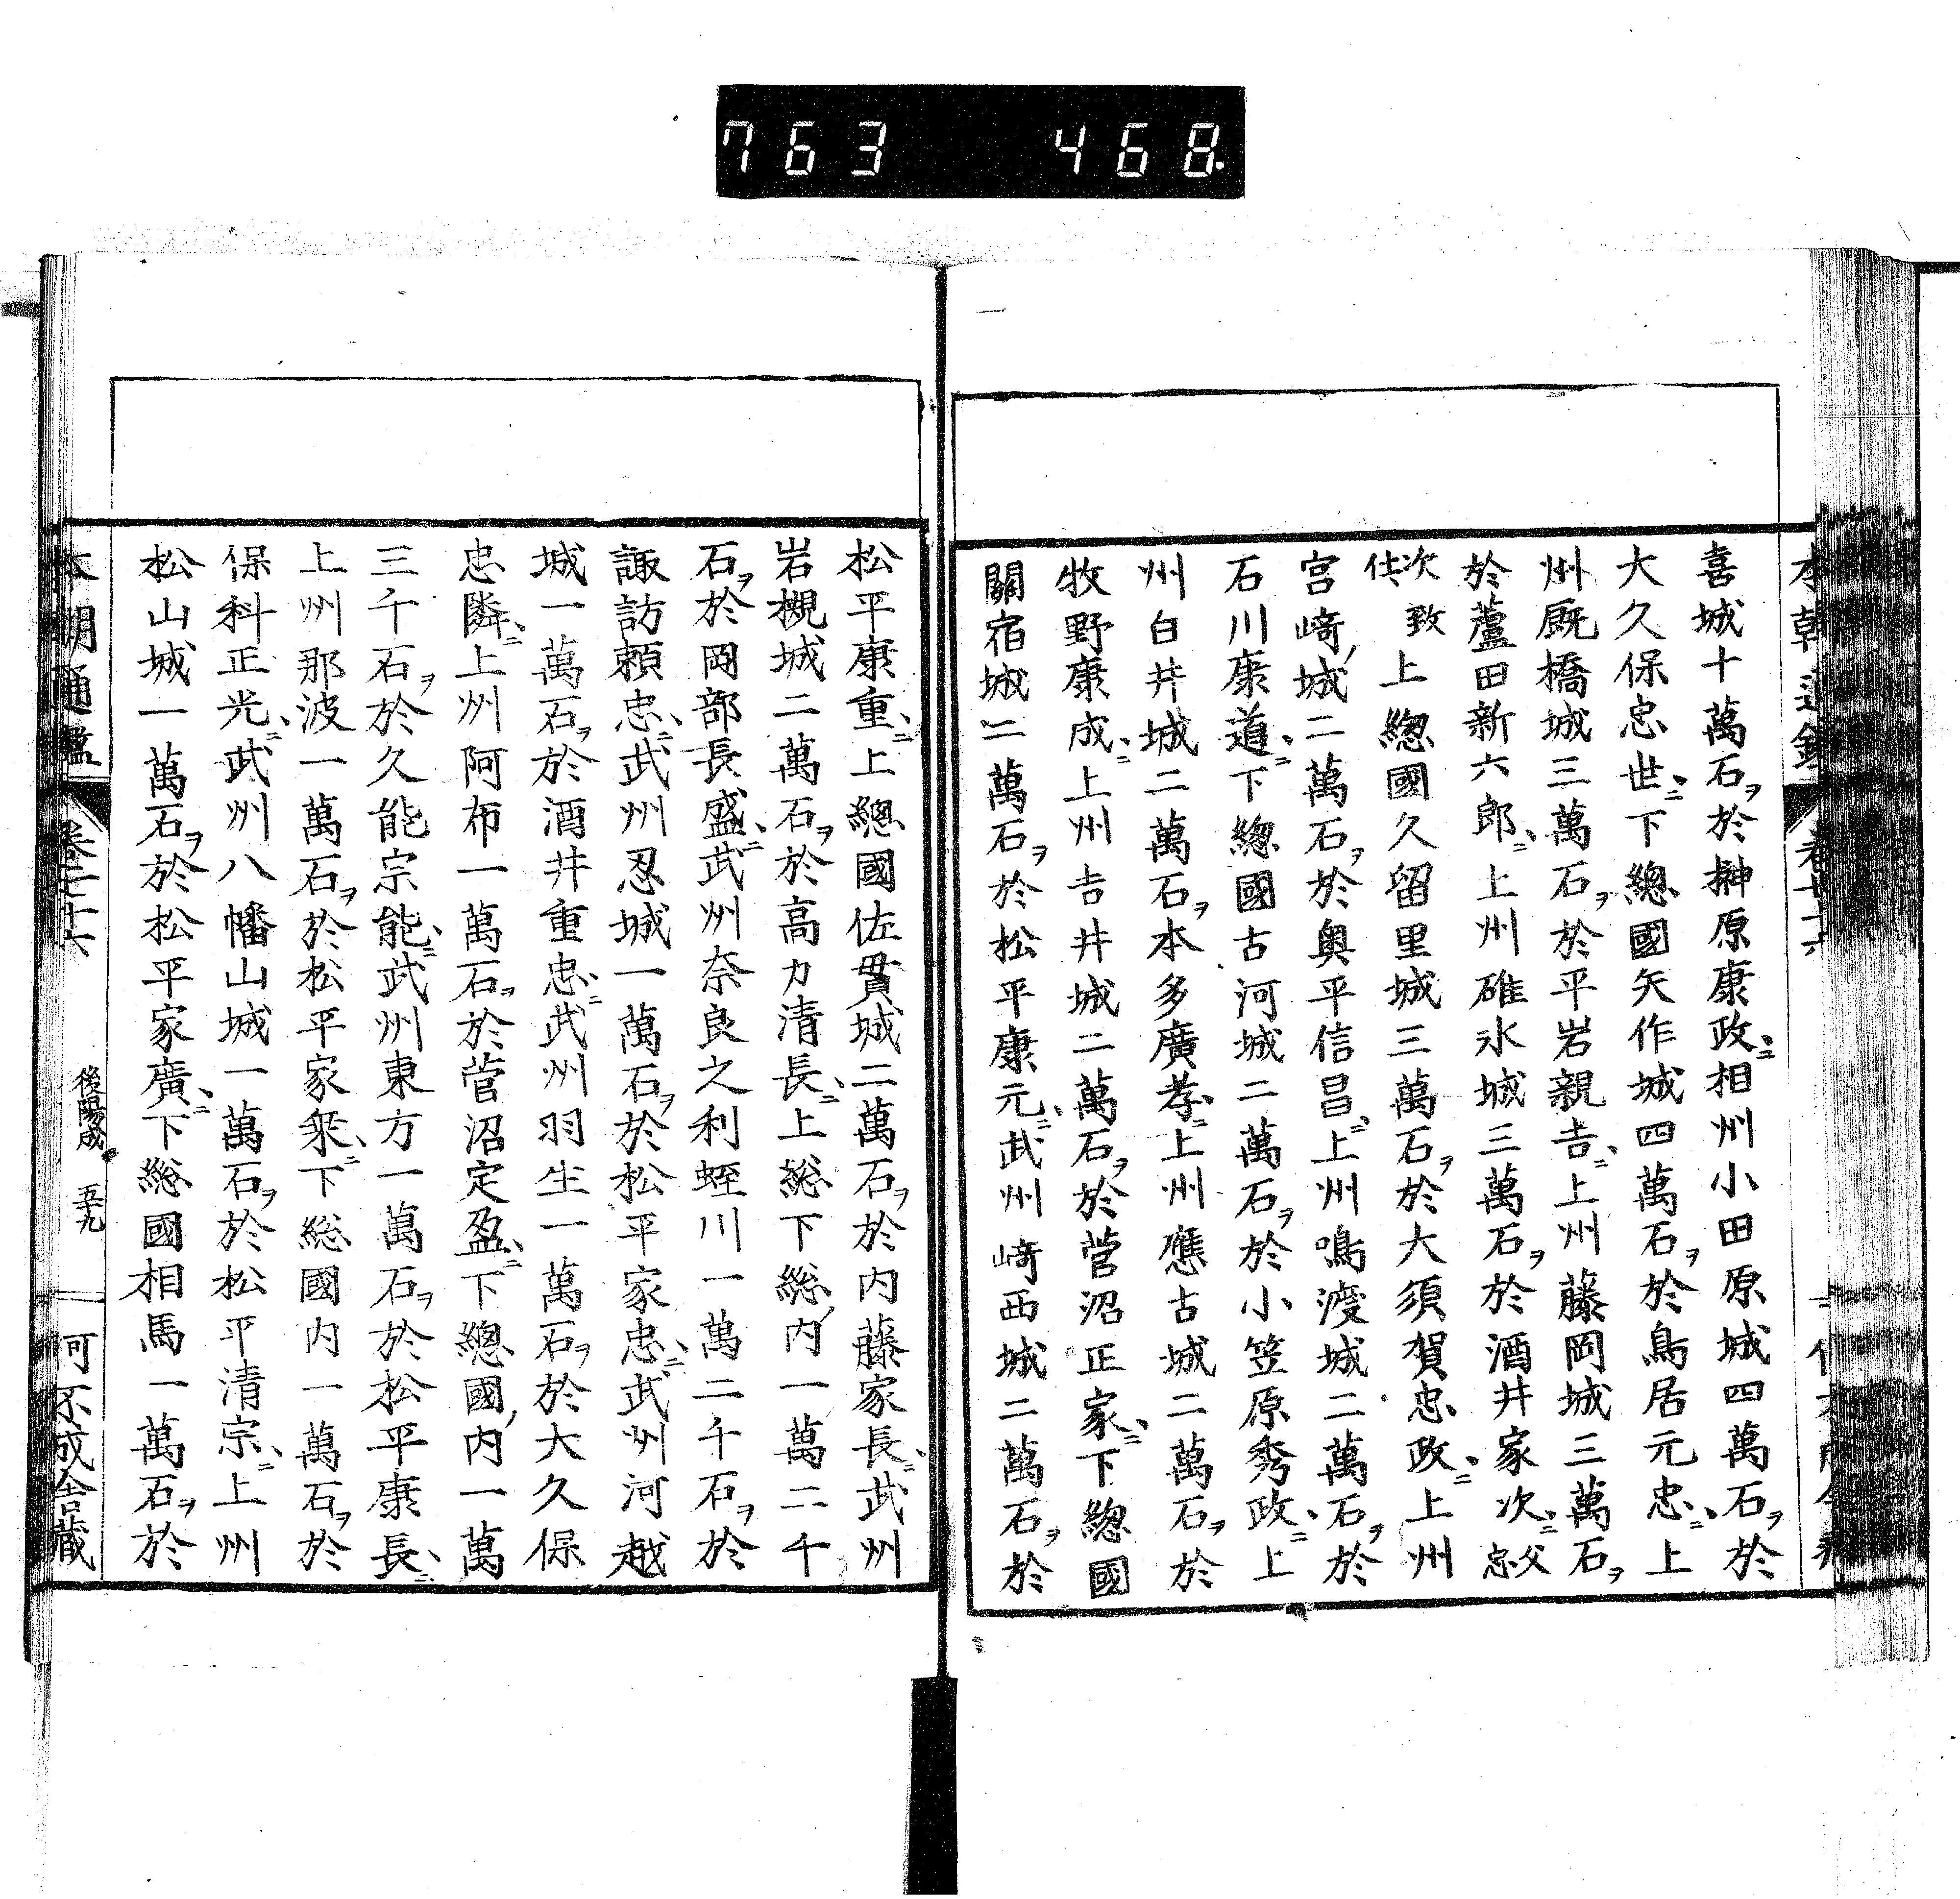 763 468
喜城十萬石ヲ於榊原康政ニ相州小田原城四萬石ヲ於
大久保忠世ニ下總國矢作城四萬石ヲ於鳥居元忠ニ上
州厩橋城三萬石ヲ於平岩親吉ニ上州藤岡城三萬石ヲ
於蘆田新六郎ニ上州碓氷城三萬石ヲ於酒井家次ニ父忠
次致仕上總國久留里城三萬石ヲ於大須賀忠政ニ上州
宮﨑城二萬石ヲ於奥平信昌ニ上州鳴渡城二萬石ヲ於
石川康道ニ下總國古河城二萬石ヲ於小笠原秀政ニ上
州白井城二萬石ヲ本多廣孝ニ上州應古城二萬石ヲ於
牧野康成ニ上州吉井城二萬石ヲ於菅沼正家ニ下總國
關宿城二萬石ヲ於松平康元ニ武州﨑西城二萬石ヲ於
松平康重ニ上總國佐貫城二萬石ヲ於内藤家長ニ武州
岩槻城二萬石ヲ於高力清長ニ上総下総内一萬二千
石ヲ於岡部長盛ニ武州奈良之利蛭川一萬二千石ヲ於
諏訪頼忠ニ武州忍城一萬石ヲ於松平家忠ニ武州河越
城一萬石ヲ於酒井重忠ニ武州羽生一萬石ヲ於大久保
忠隣ニ上州阿布一萬石ヲ於菅沼定盈ニ下總國内一萬
三千石ヲ於久能宗能ニ武州東方一萬石ヲ於松平康長ニ
上州那波一萬石ヲ於松平家乗ニ下総國内一萬石ヲ於
保科正光ニ武州八幡山城一萬石ヲ於松平清宗ニ上州
松山城一萬石ヲ於松平家廣ニ下総國相馬一萬石ヲ於
本朝通鑑 卷七十六 後陽成 五十九 可不成舎藏